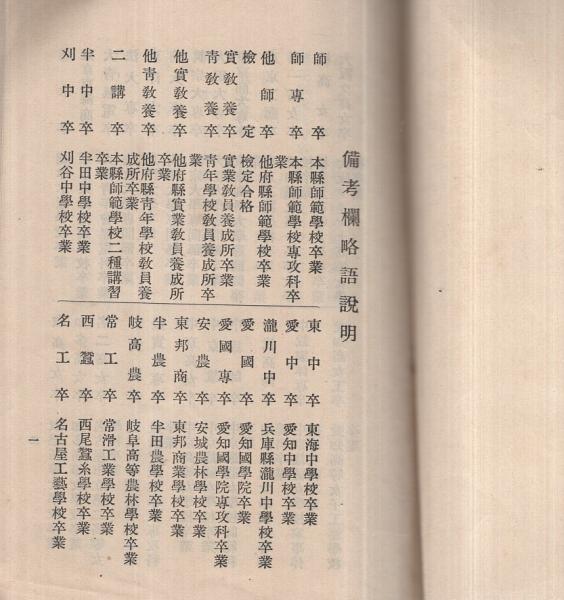 備考欄略語說明
師卒 本縣師範學校卒業
師一專卒 本縣師範學校專攻科卒業
他師卒 他府縣師範學校卒業
檢定 檢定合格
實教養卒 實業教員養成所卒業
靑教養卒 靑年學校教員養成所卒業
他實教養卒 他府縣實業教員養成所卒業
他靑教養卒 他府縣靑年學校教員養成所卒業
二講卒 本縣師範學校二種講習卒業
半中卒 半田中學校卒業
刈中卒 刈谷中學校卒業
東中卒 東海中學校卒業
愛中卒 愛知中學校卒業
瀧川中卒 兵庫縣瀧川中學校卒業
愛國卒 愛知國學院卒業
愛國專卒 愛知國學院專攻科卒業
安農卒 安城農林學校卒業
東邦商卒 東邦商業學校卒業
半農卒 半田農學校卒業
岐高農卒 岐阜高等農林學校卒業
常工卒 常滑工業學校卒業
西蠶卒 西尾蠶糸學校卒業
名工卒 名古屋工藝學校卒業
一